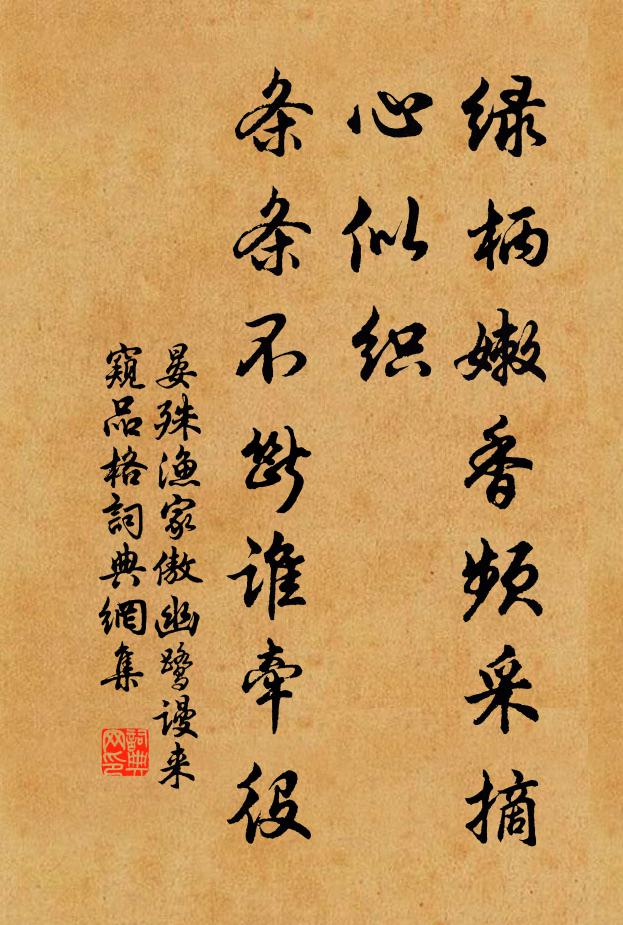 绿柄嫩香频采摘
心似织
条条不断谁牵役
晏殊渔家傲幽鹭谩来
窥品格詞典網集
詞典网印